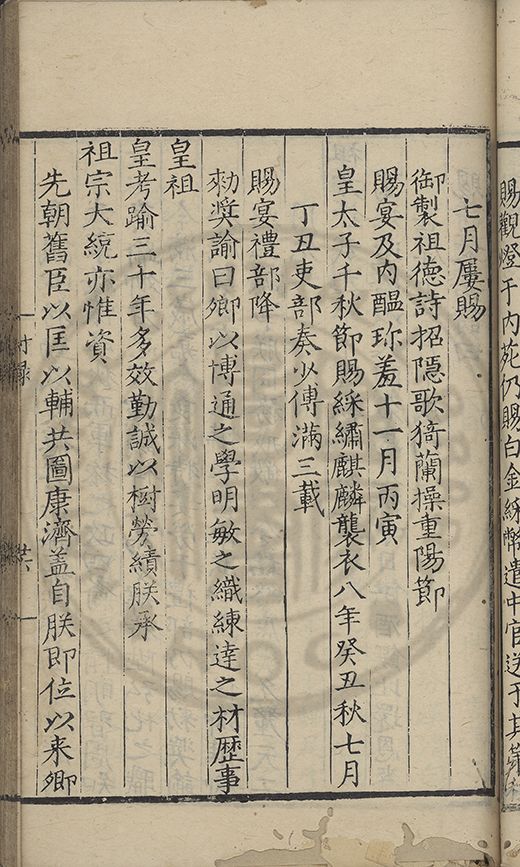 賜觀燈于内苑仍賜白金綵幣遣中官送于其第
七月屢賜
御製祖德詩招隠歌猗蘭操重陽節
賜宴及内醖珎羞十一月丙寅
皇太子千秋節賜綵繡麒麟襲衣八年癸丑秋七月
丁丑吏部奏少傅滿三載
賜宴禮部降
勑奨諭曰卿以博通之學明敏之織練達之材歴事
皇祖
皇考踰三十年多效勤誠以樹勞績朕承
祖宗大統亦惟資
先朝舊臣以匡以輔共圖康濟盖自朕即位以来卿
付録